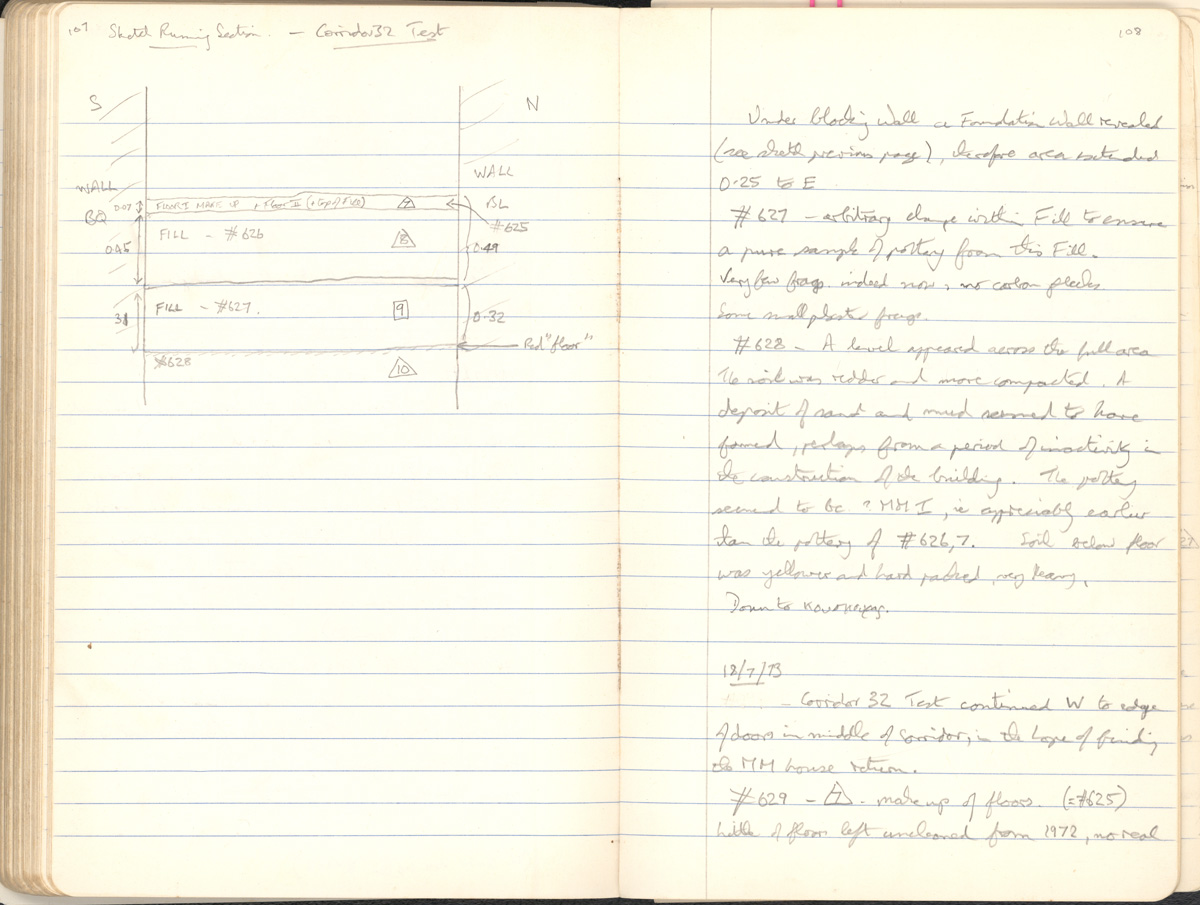 107 Sketch Running Section. – Corridor 32 Test
S
N
WALL
WALL
0.07
FLOOR I MAKE UP, + Floor II (+ top of Fill)
7
BL
BQ
#625
FILL – #626
8
0.45
0.49
FILL – #627.
9
31
0.32
Red "floor"
#628
10
108
Under blocking wall a Foundation Wall revealed
(see sketch previous page), therefore area extended
0.25 to E
#627 – arbitrary change within Fill to ensure
a pure sample of pottery from this Fill.
Very few frags. indeed now, no carbon flecks
Some small plaster frags.
#628 – A level appeared across the full area
The soil was redder and more compacted. A
deposit of sand and mud seemed to have
formed, perhaps from a period of inactivity in
the construction of the building. The pottery
seemed to be ? MM I, ie appreciably earlier
than the pottery of #626,7. Soil below floor
was yellower and hard packed, very heavy.
Down to
18/7/73
– Corridor 32 Test continued W to edge
of doors in middle of corridor, in the hope of finding
the MM house return.
#629 – 7 – make up of floors. (=#625)
Little of floors left uncleaned from 1972, no real